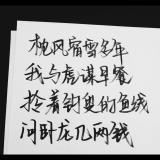 枕风宿雪多年
我与虎谋早餐
拎着钩奥的鱼线
问卧龙几两钱